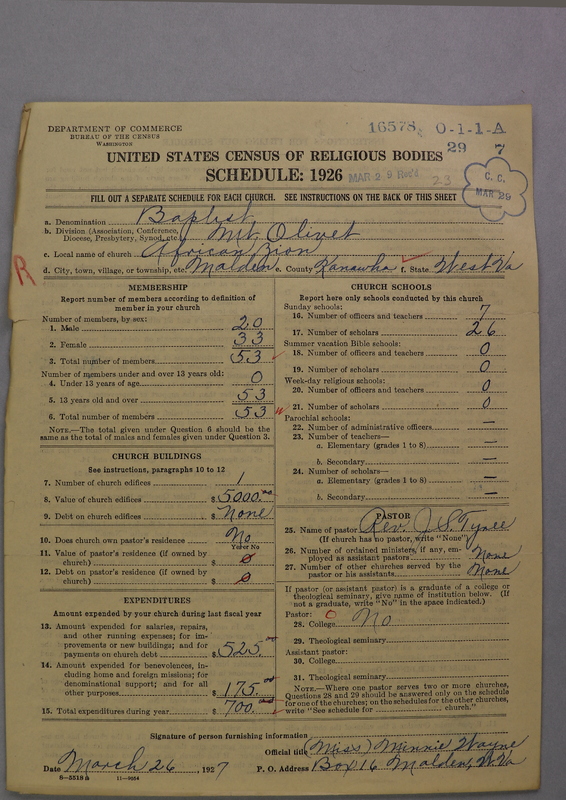 DEPARTMENT OF COMMERCE
BUREAU OF THE CENSUS
WASHINGTON
16578 0-1-1-A
29 7
UNITED STATES CENSUS OF RELIGIOUS BODIES
SCHEDULE: 1926
MAR 29 Rec'd 23
C. C.
MAR 29
FILL OUT A SEPARATE SCHEDULE FOR EACH CHURCH. SEE INSTRUCTIONS ON THE BACK OF THIS SHEET
a. Denomination Baptist
b. Division (Association, Conference, Diocese, Presbytery, Synod, etc.) Mt Olivet
c. Local name of church African Zion
R
d. City, town, village, or township, etc. Malden e. County Kanawha f. State West Va
MEMBERSHIP
Report number of members according to definition of
member in your church
Number of members, by sex:
1. Male 20
2. Female 33
3. Total number of members 53
Number of members under and over 13 years old:
4. Under 13 years of age 0
5. 13 years old and over 53
6. Total number of members 53
NOTE.—The total given under Question 6 should be the
same as the total of males and females given under Question 3.
CHURCH BUILDINGS
See instructions, paragraphs 10 to 12
7. Number of church edifices 1
8. Value of church edifices $ 5000.00
9. Debt on church edifices $ None
10. Does church own pastor's residence? No
Yes or No
11. Value of pastor's residence (if owned by
church) $ 0
12. Debt on pastor's residence (if owned by
church) $ 0
EXPENDITURES
Amount expended by your church during last fiscal year
13. Amount expended for salaries, repairs,
and other running expenses; for im-
provements or new buildings; and for
payments on church debt $ 525.00
14. Amount expended for benevolences, in-
cluding home and foreign missions; for
denominational support; and for all
other purposes $ 175.00
15. Total expenditures during year $ 700.00
CHURCH SCHOOLS
Report here only schools conducted by this church
Sunday schools:
16. Number of officers and teachers 7
17. Number of scholars 26
Summer vacation Bible schools:
18. Number of officers and teachers 0
19. Number of scholars 0
Week-day religious schools:
20. Number of officers and teachers 0
21. Number of scholars 0
Parochial schools:
22. Number of administrative officers —
23. Number of teachers—
a. Elementary (grades 1 to 8) —
b. Secondary —
24. Number of scholars—
a. Elementary (grades 1 to 8) —
b. Secondary —
PASTOR
25. Name of pastor Rev. J. S. Tynee
(If church has no pastor, write "None")
26. Number of ordained ministers, if any, em-
ployed as assistant pastors None
27. Number of other churches served by the
pastor or his assistants None
If pastor (or assistant pastor) is a graduate of a college or
theological seminary, give name of institution below. (If
not a graduate, write "No" in the space indicated.)
Pastor: 0
28. College No
29. Theological seminary
Assistant pastor:
30. College
31. Theological seminary
NOTE.—Where one pastor serves two or more churches,
Questions 28 and 29 should be answered only on the schedule
for one of the churches; on the schedules for the other churches,
write "See schedule for church."
Signature of person furnishing information
Official title (Miss) Minnie Wayne
Date March 26, 1927 P. O. Address Box 16 Malden, W. Va
8—5518 a 11—9064